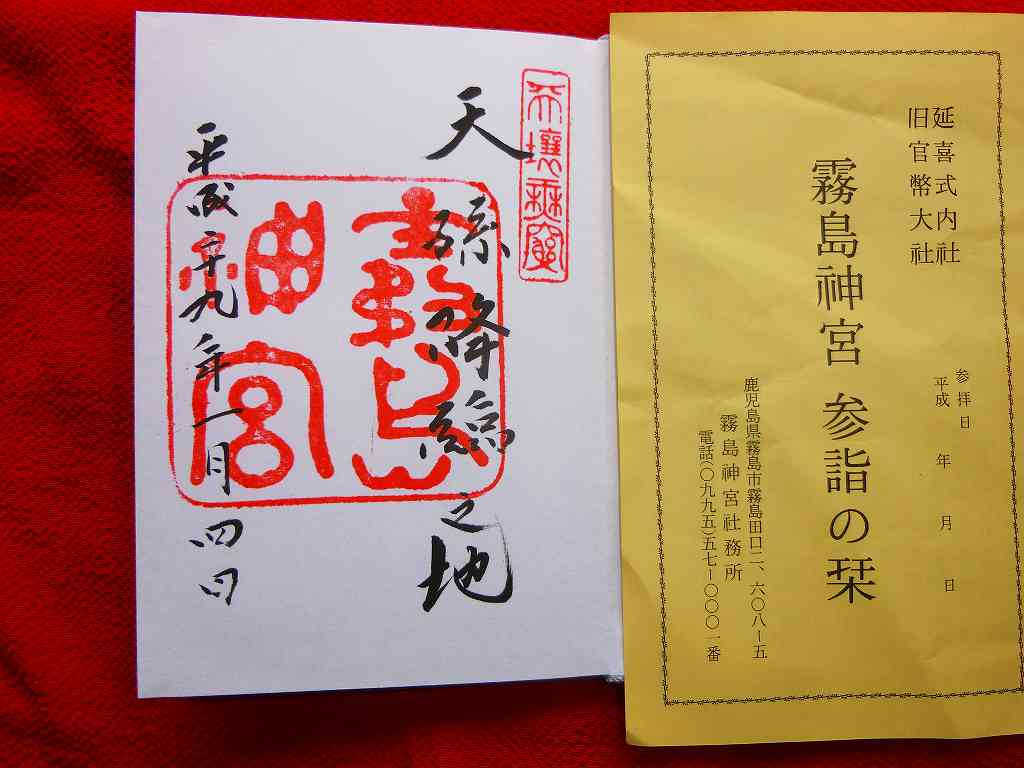 天壌無窮
天孫降臨之地
霧島
神宮
平成二十九年一月四日
延喜式内社
旧官幣大社
霧島神宮 参詣の栞
参拝日
平成 年 月 日
鹿児島県霧島市霧島田口二、六〇八ー五
霧島神宮社務所
電話(〇九九五)五七ー〇〇〇一番